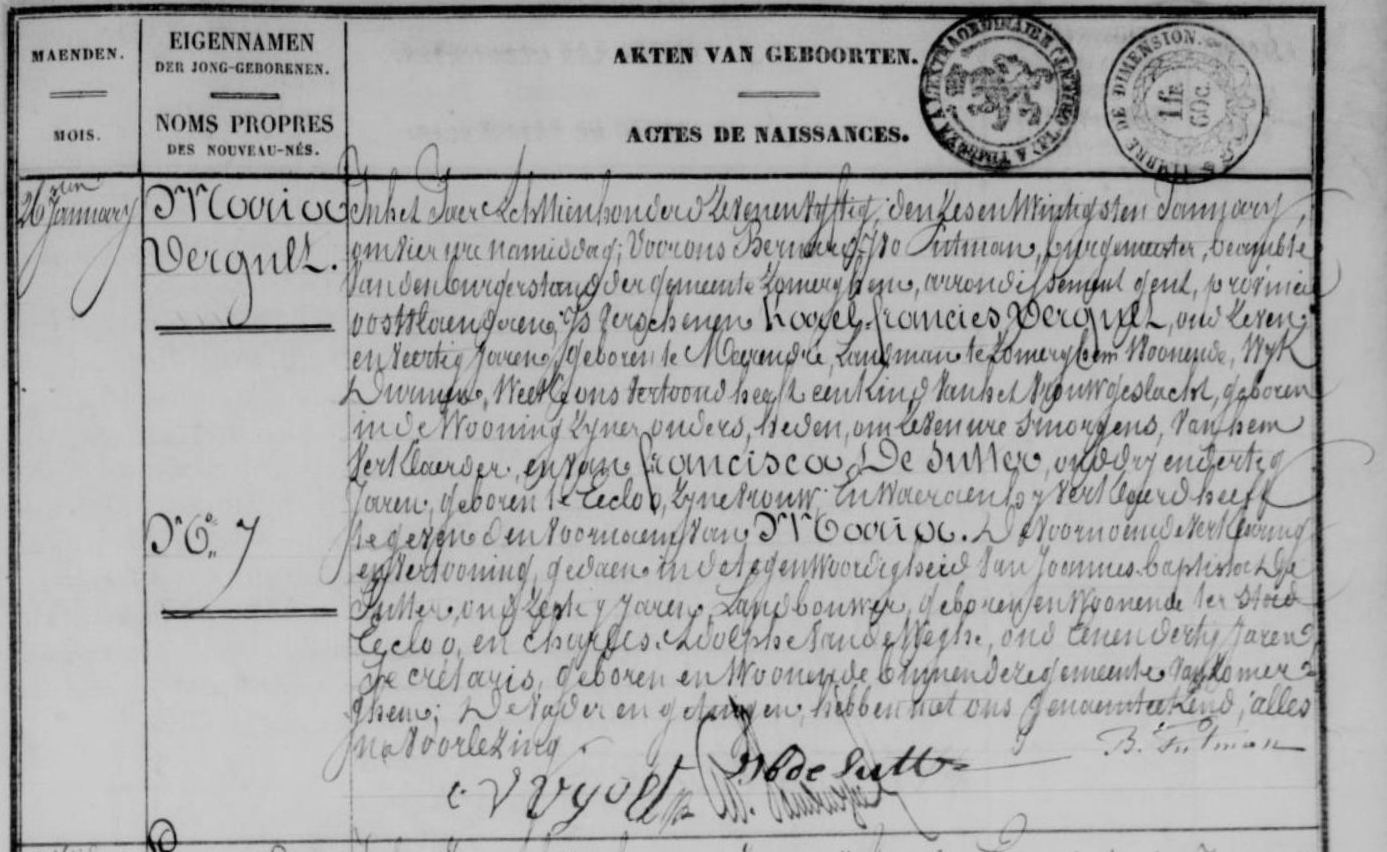 MAENDEN.
MOIS.
EIGENNAMEN
DER JONG-GEBORENEN.
NOMS PROPRES
DES NOUVEAU-NÉS.
AKTEN VAN GEBOORTEN.
ACTES DE NAISSANCES.
TIMBRE DE DIMENSION.
1 fr
60c.
26sten January
Maria
Vergult.
N° 7
In het Jaer Achttienhonderd Zevenenvyftig, den Zesentwintigsten January,
om vier ure namiddag; Voor ons Bernard Ivo Putman, burgemeester, beambte
Van den burgerstand der gemeente Zomerghem, arrondissement Gent, provincie
oostvlaenderen; Is ferschenen Karel francies Vergult, oud zeven
en veertig Jaren, geboren te Meerendré, Landman te Zomerghem Woonende, Wyk
Durmen, Welke ons vertoond heeft een Kind van het Vrouwgeslacht, geboren
in de Wooning zyner ouders, heden, om zeven ure smorgens, Van hem
Verklaerder, en van francisca De Sutter, oud dry en dertig
Jaren, geboren te Eecloo, zyne Vrouw; En Waeraen hy Verklaerd heeft
te geven den Voornaem Van Maria. De Voornoemde Verklaring
en Vertooning gedaen in de tegenwoordigheid Van Joannes-baptista De
Sutter, oud zestig Jaren, Landbouwer, geboren en Woonende ter Stad
Eecloo, en Charles Adolphe Van de Weghe, oud eenendertig Jaren,
Secrétaris, geboren en Woonende binnen deze gemeente Van Zomer=
ghem; De Vader en getuigen, hebben met ons genaemteekend, alles
na Voorlezing.
B. Putman
de Sutter